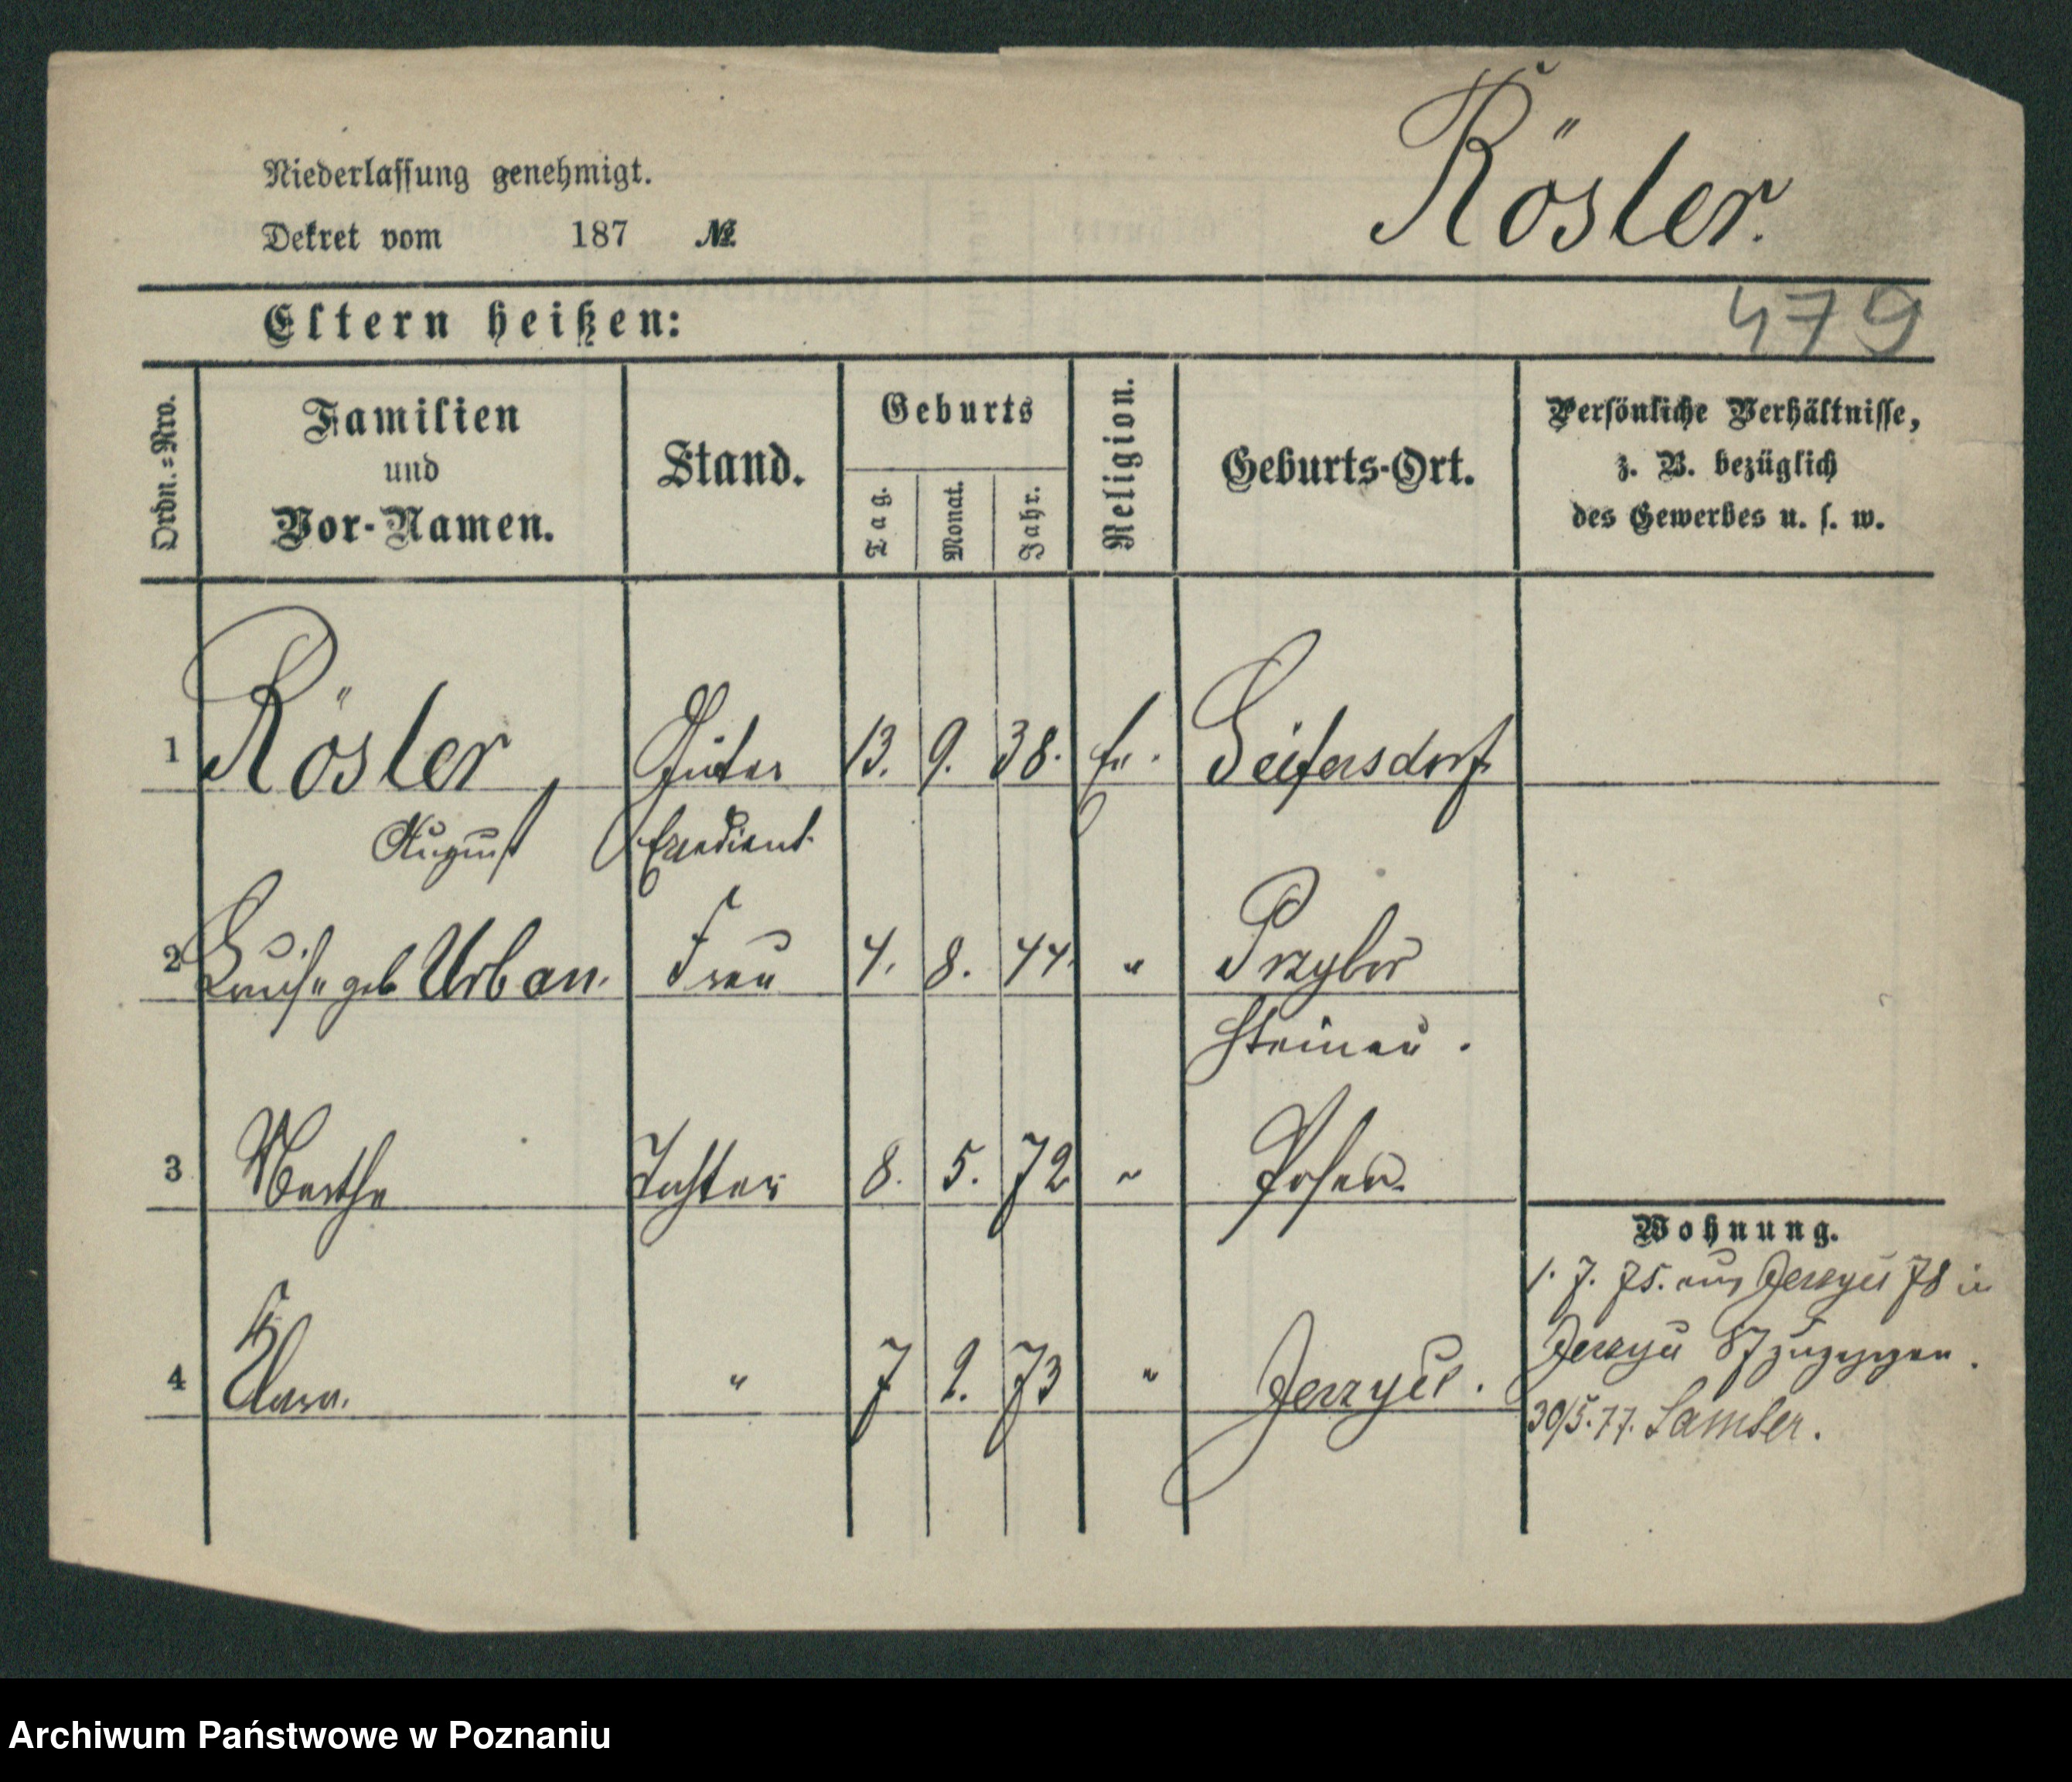 Rösler.
Niederlassung genehmigt.
Dekret vom 187 №
479
Eltern heißen:
Ordn.=Nro.
Familien
und
Vor-Namen.
Stand.
Geburts
Tag.
Monat.
Jahr.
Religion.
Geburts-Ort.
Persönliche Verhältnisse,
z. B. bezüglich
des Gewerbes u. s. w.
1 Rösler, Güter 13. 9. 38. ev. Seifersdorf
August Expedient
2 Louise geb Urban. Frau 4. 8. 44. " Przybor
Steinau.
3 Marthe Tochter 8. 5. 72 " Posen.
Wohnung.
1. 7. 75. aus Jerzyce 78 in
Jerzyce 87 zugezogen.
4 Clara. " 7 2. 73 " Jerzyce.
30/5.77. Samter.
Archiwum Państwowe w Poznaniu